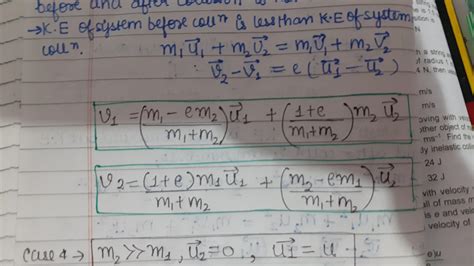 before and after collision is not
→ K.E of system before collⁿ is less than K.E of system
collⁿ.
m₁u⃗₁ + m₂u⃗₂ = m₁v⃗₁ + m₂v⃗₂
∴ v⃗₂ - v⃗₁ = e (u⃗₁ - u⃗₂)
v⃗₁ = (m₁ - em₂ / m₁+m₂) u⃗₁ + (1+e / m₁+m₂) m₂ u⃗₂
v⃗₂ = (1+e) m₁ u⃗₁ / m₁+m₂ + (m₂ - em₁ / m₁+m₂) u⃗₂
Case 4 → m₂ >> m₁, u⃗₂ = 0, u⃗₁ = u
a string
of radius
N, then
m/s
m/s
oving with
other object of
m/s. Find the
dy inelastic
24 J
32 J
with velocity
all of mass m
is e and
velocity of
e)u